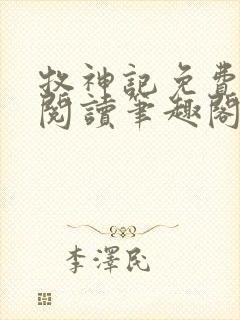 牧神記免費
閱讀筆趣閣
李澤民